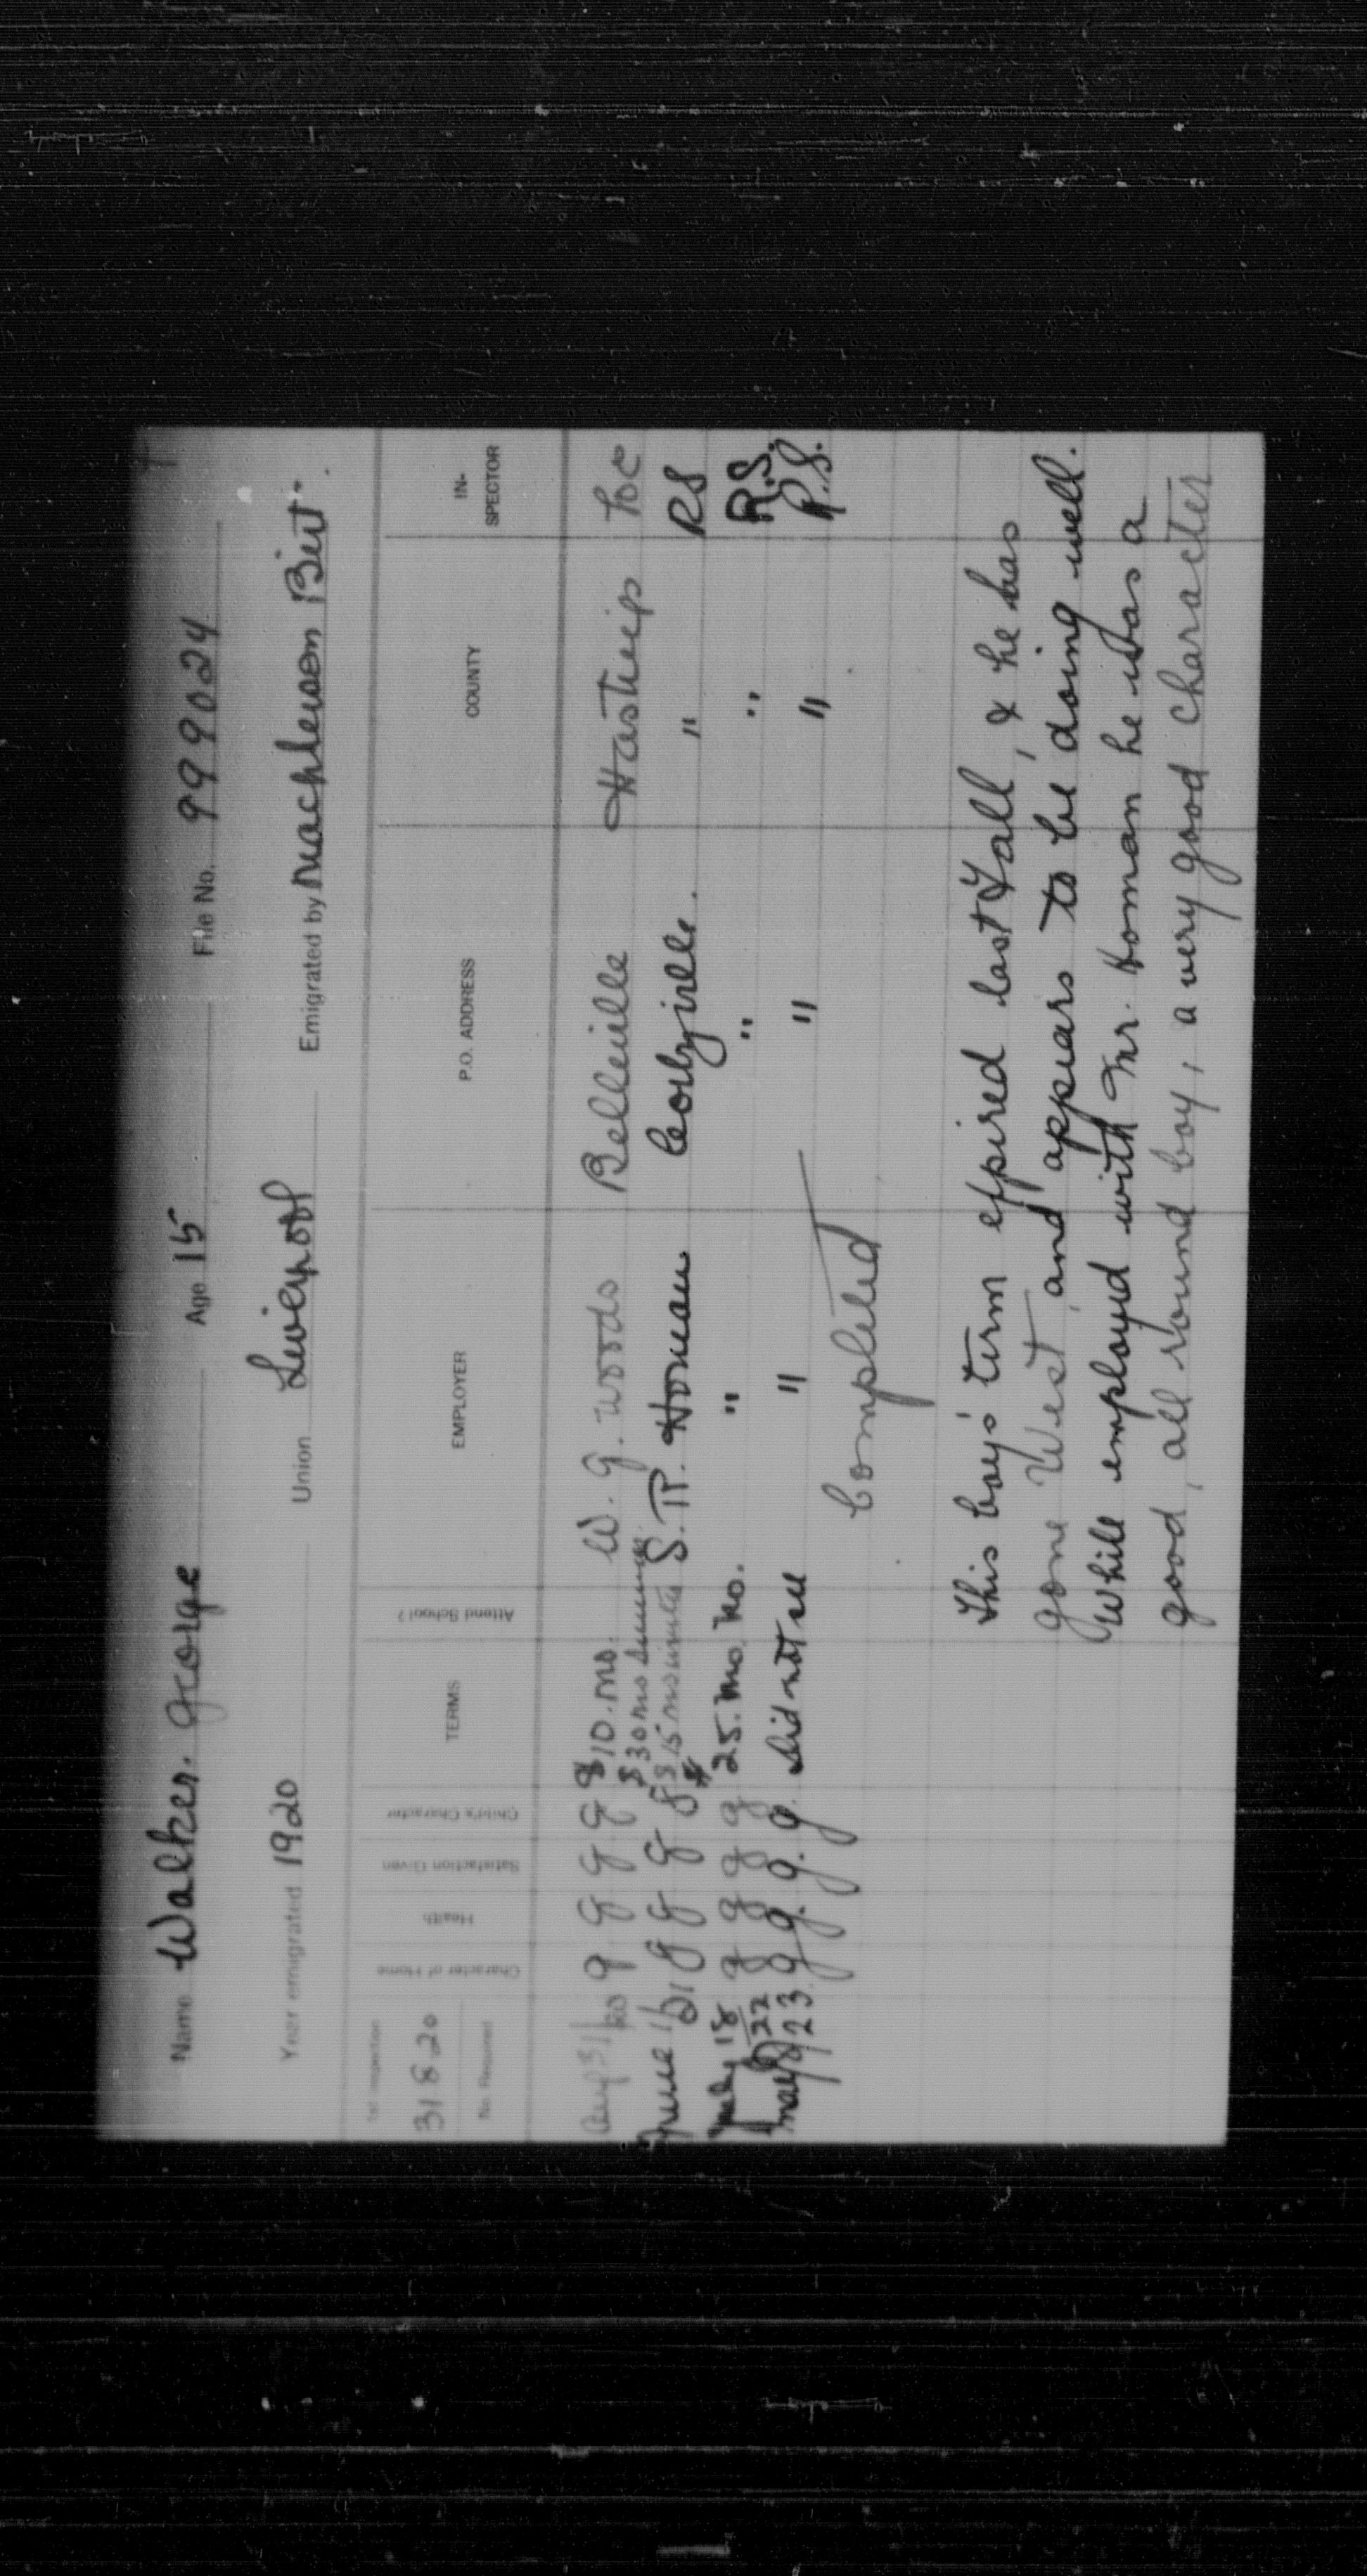 Name Walker. George Age 15 File No. 999024
Year emigrated 1920 Union Liverpool Emigrated by
1st Inspection
31 8 20
No. Required
Character of Home
Health
Satisfaction Given
Child's Character
TERMS
Attend School?
EMPLOYER
P.O. ADDRESS
COUNTY
IN-
SPECTOR
Aug 31/20 g g g g $10. mo. W. G. Woods Belleville Hastings
June 1/21 g g g g $30 mo summer $15 mo winter S. P. Homan Corbyville. " RS
July 18/22 g g g g $25. mo. No. " " " R.S.
May 9/23. g g. g. g. did not see " " " R.S.
Completed
This boy's term expired last Fall, & he has
gone West, and appears to be doing well.
While employed with Mr. Homan he was a
good, all round boy, a very good character